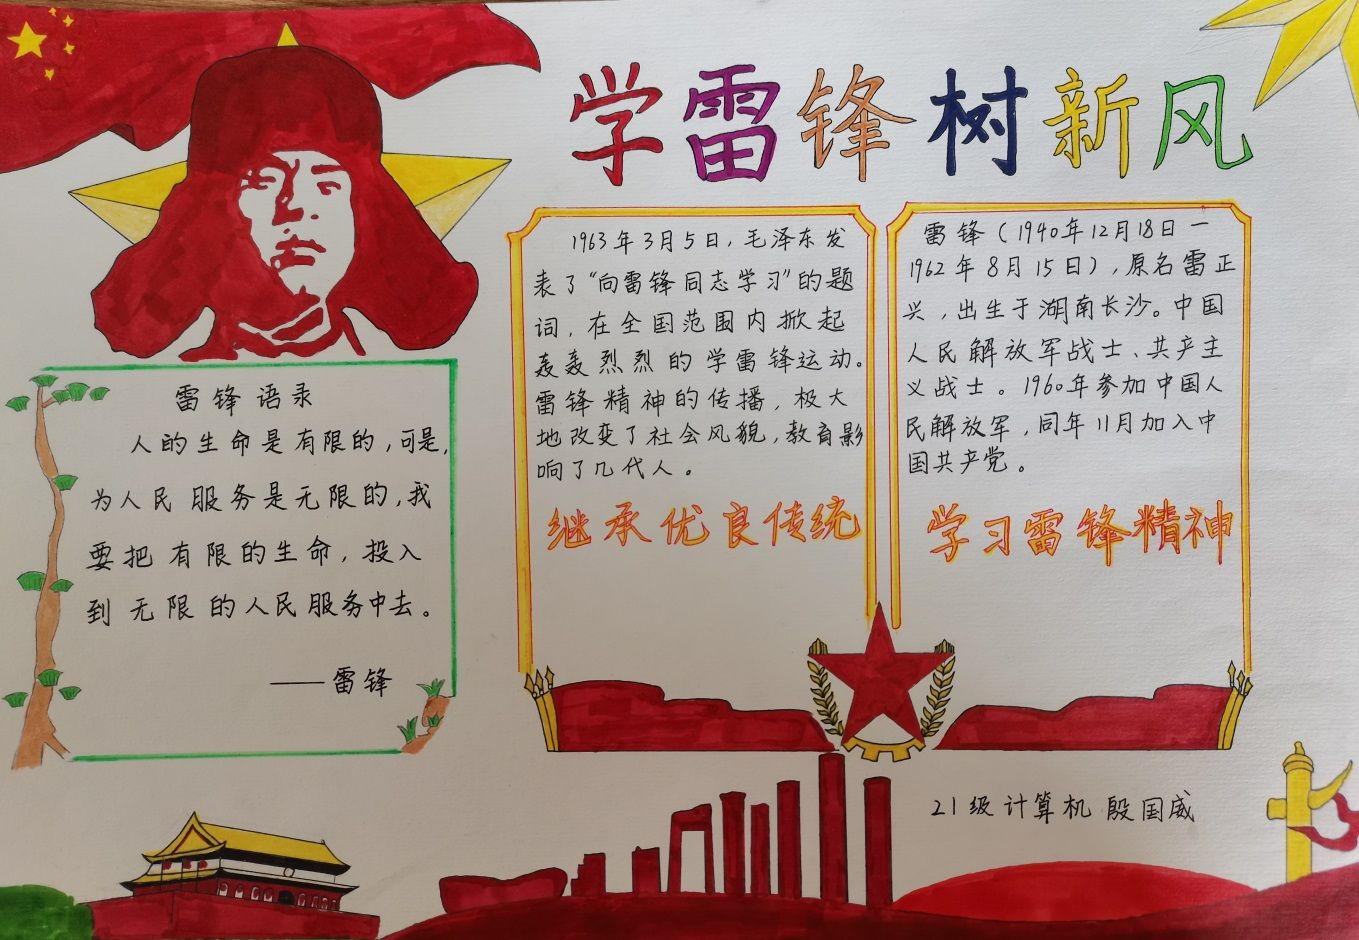 学雷锋树新风
雷锋语录
人的生命是有限的，可是，
为人民服务是无限的，我
要把有限的生命，投入
到无限的人民服务中去。
——雷锋
1963年3月5日，毛泽东发
表了“向雷锋同志学习”的题
词，在全国范围内掀起
轰轰烈烈的学雷锋运动。
雷锋精神的传播，极大
地改变了社会风貌，教育影
响了几代人。
继承优良传统
雷锋（1940年12月18日一
1962年8月15日），原名雷正
兴，出生于湖南长沙。中国
人民解放军战士、共产主
义战士。1960年参加中国人
民解放军，同年11月加入中
国共产党。
学习雷锋精神
21级计算机殷国威